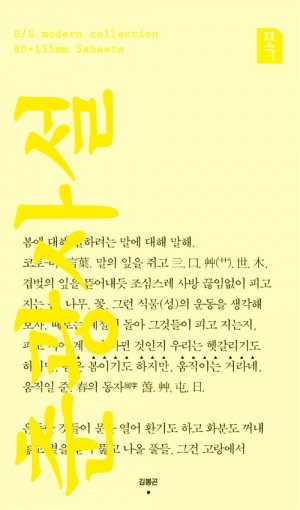 S/S modern collection
80*135mm 5sheets
쪽
춘광사설
봄에 대해 말하려는 말에 대해 말해.
言葉, 말의 잎을 쥐고 三, 口, 艸(艹), 世, 木,
겹벚의 잎을 뜯어내듯 조심스레 사방 끊임없이 피고
지는 나무, 꽃, 그런 식물(성)의 운동을 생각해
보자. 때로는 계절이 돌아 그것들이 피고 지는지,
피고 지어 바뀐 것인지 우리는 헷갈리기도
하지만, 봄은 봄이기도 하지만, 움직이는 거라네.
움직일 준, 春의 동자同字 萅, 艸, 屯, 日.
것들이 문을 열어 환기도 하고 화분도 꺼내
뚫고 나올 풀들, 그건 고랑에서
김봉곤